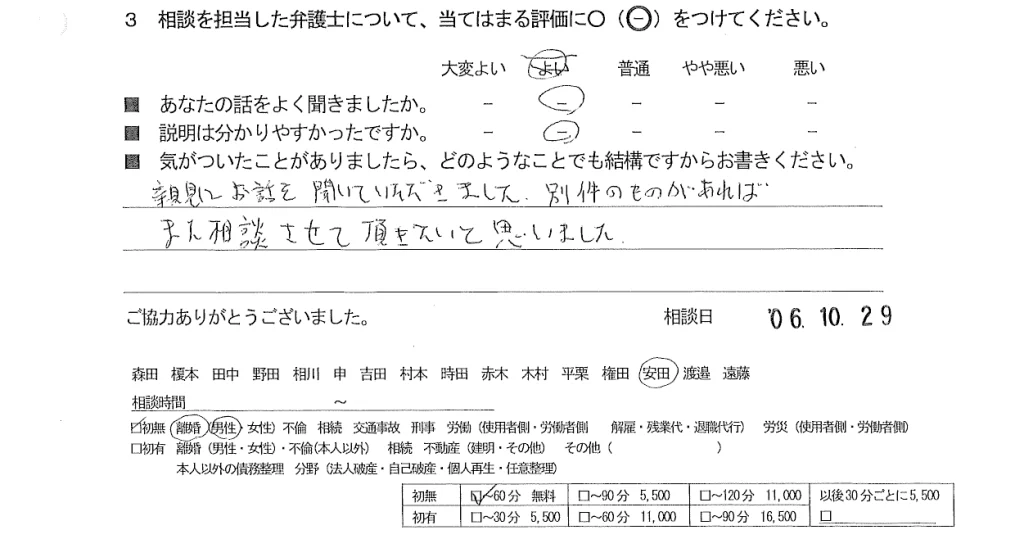 3 相談を担当した弁護士について、当てはまる評価に○(㊀)をつけてください。
大変よい よい 普通 やや悪い 悪い
■ あなたの話をよく聞きましたか。 － － － － －
■ 説明は分かりやすかったですか。 － － － － －
■ 気がついたことがありましたら、どのようなことでも結構ですからお書きください。
親身にお話を聞いていただきました。別件のものがあれば
また相談させて頂きたいと思いました。
ご協力ありがとうございました。 相談日 '06.10.29
森田 榎本 田中 野田 相川 申 吉田 村本 時田 赤木 木村 平栗 権田 安田 渡邉 遠藤
相談時間 ～
☑初無 離婚 (男性・女性) 不倫 相続 交通事故 刑事 労働 (使用者側・労働者側 解雇・残業代・退職代行) 労災 (使用者側・労働者側)
□初有 離婚 (男性・女性)・不倫(本人以外) 相続 不動産 (建明・その他) その他 ( )
本人以外の債務整理 分野 (法人破産・自己破産・個人再生・任意整理)
初無 ☑～60分 無料 □～90分 5,500 □～120分 11,000 以後30分ごとに5,500
初有 □～30分 5,500 □～60分 11,000 □～90分 16,500 □